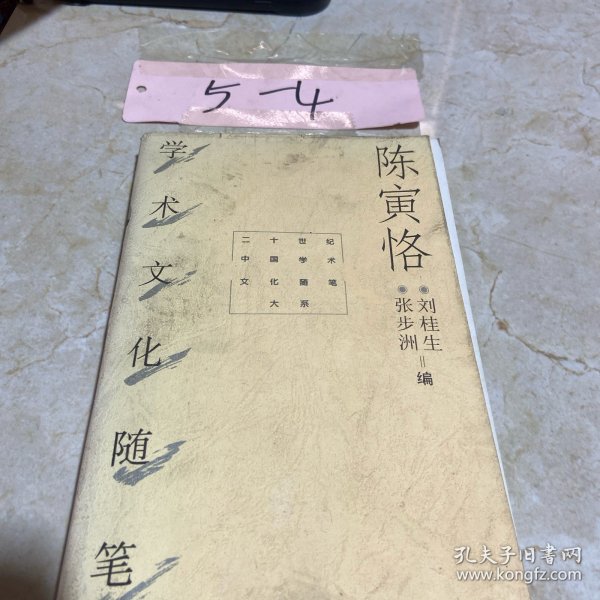 5-4
陈寅恪
学术文化随笔
二十世纪
中国学术
文化随笔
大系
刘桂生
张步洲
=编
孔夫子旧书网
www.kongfz.com